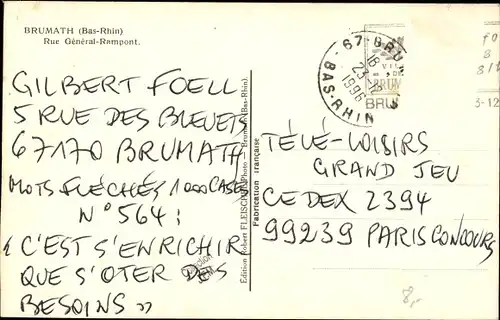 BRUMATH (Bas-Rhin)
Rue Général-Rampont.
GILBERT FOELL
5 RUE DES BLEUETS
67170 BRUMATH
MOTS FLÉCHÉS 1000 CASES
N° 564 :
« C'EST S'ENRICHIR
QUE S'OTER DES
BESOINS »
Edition Robert FLEISCH, Photo — Brumath (Bas-Rhin).
Fabrication française
67 - BRU
BAS-RHIN
1996
BRUM
BRU
3-12
TÉLÉ-LOISIRS
GRAND JEU
CEDEX 2394
99239 PARIS CONCOURS
8,-